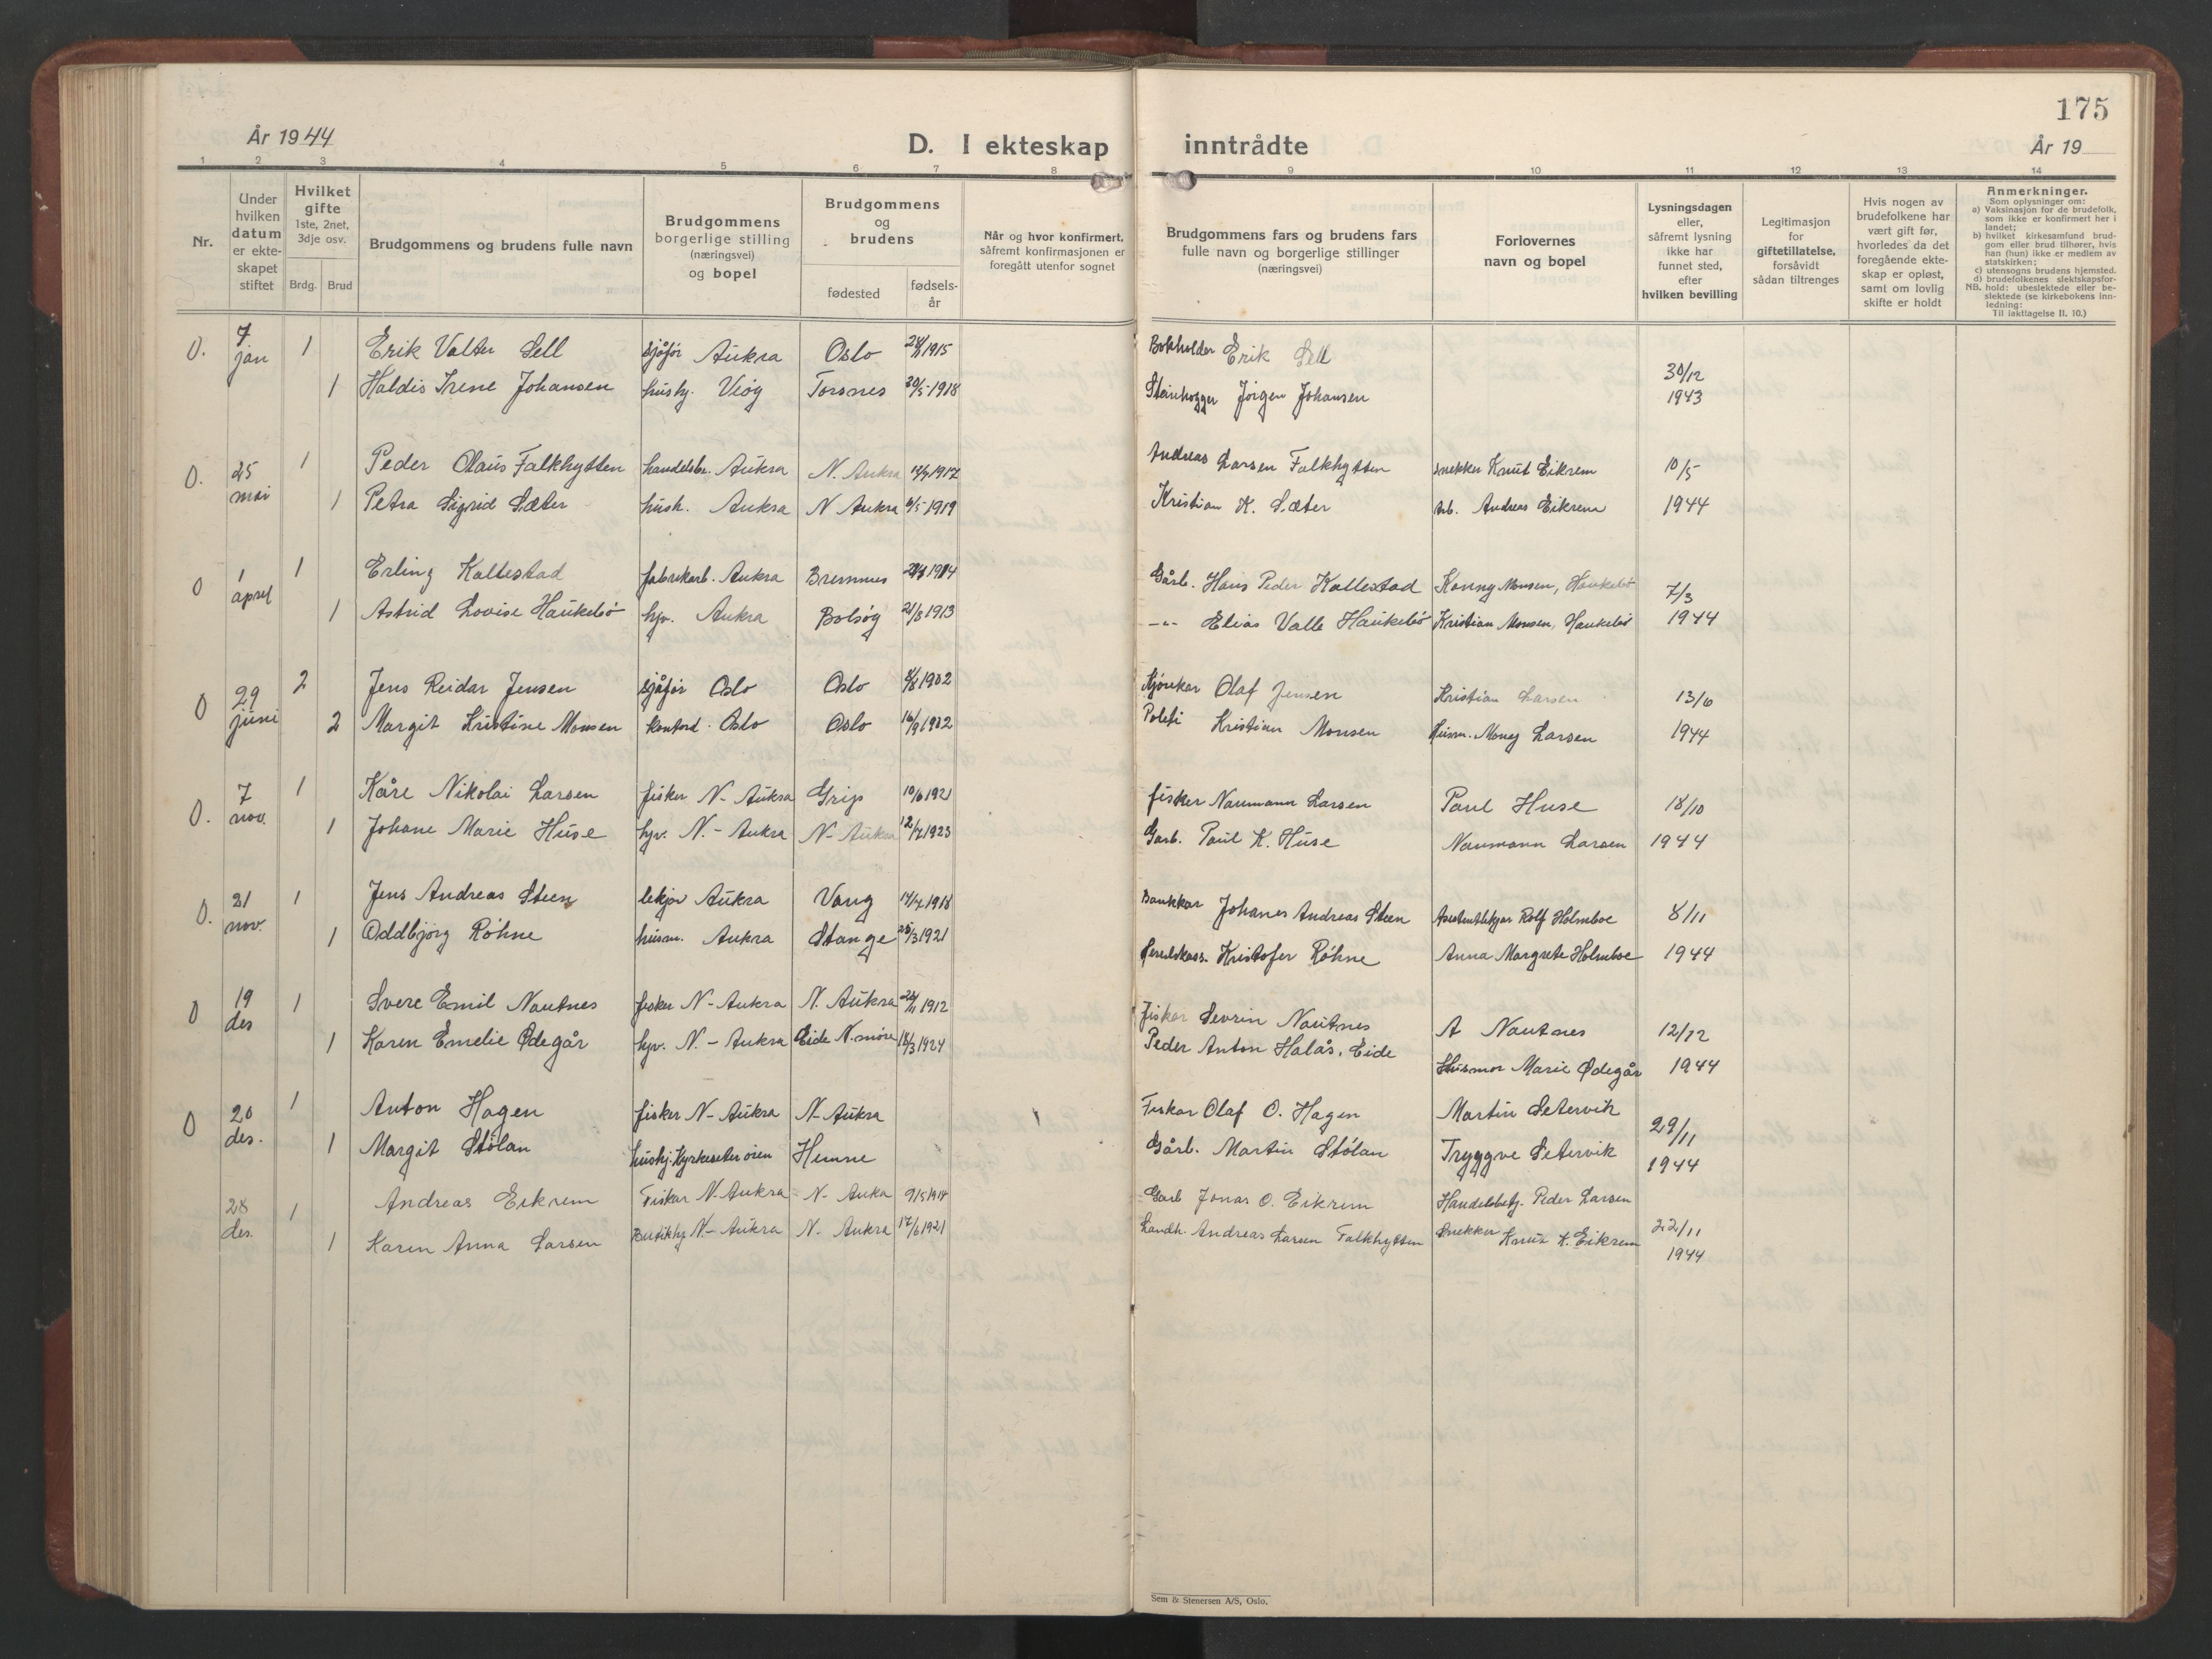 175
År 1944
D. I ekteskap inntrådte
År 19
1 2 3 4 5 6 7 8 9 10 11 12 13 14
Nr.
Under hvilken datum er ekte- skapet stiftet
Hvilket gifte 1ste, 2net, 3dje osv.
Brdg. Brud
Brudgommens og brudens fulle navn
Brudgommens borgerlige stilling (næringsvei) og bopel
Brudgommens og brudens
fødested
fødsels- år
Når og hvor konfirmert, såfremt konfirmasjonen er foregått utenfor sognet
Brudgommens fars og brudens fars fulle navn og borgerlige stillinger (næringsvei)
Forlovernes navn og bopel
Lysningsdagen eller, såfremt lysning ikke har funnet sted, efter hvilken bevilling
Legitimasjon for giftetillatelse, forsåvidt sådan tiltrenges
Hvis nogen av brudefolkene har vært gift før, hvorledes da det foregående ekte- skap er opløst, samt om lovlig skifte er holdt
Anmerkninger.
Som oplysninger om:
a) Vaksinasjon for de brudefolk, som ikke er konfirmert her i landet;
b) hvilket kirkesamfund brud- gom eller brud tilhører, hvis han (hun) ikke er medlem av statskirken;
c) utensogns brudens hjemsted.
d) brudefolkenes slektskapsfor- hold: ubeslektede eller be- slektede (se kirkebokens inn- ledning:
NB. Til iakttagelse II. 10.)
0. 7 jan 1 Erik Valter Sell sjåfør Aukra Oslo 1915 Bokholder Erik Sell
1 Haldis Irene Johansen hushj. Veøy Torsnes 30/5-1918 Steinhogger Jørgen Johansen 30/12 1943
0. 25 mai 1 Peder Olaus Falkhytten handelsbr. Aukra N. Aukra 1917 Andreas Larsen Falkhytten snekker Knut Eikrem 10/5
1 Petra Sigrid Sæter hush. Aukra N Aukra 1919 Kristian K. Sæter Arb. Andreas Eikrem 1944
0 1 april 1 Erling Kallestad fabrikarb. Aukra Bremnes 1914 Gårb. Hans Peder Kallestad Konny Monsen, Haukebø 7/3
1 Astrid Lovise Haukebø hjv. Aukra Bolsøy 21/8 1913 -"- Elias Valle Haukebø Kristian Monsen, Haukebø 1944
0 29 juni 2 Jens Reidar Jensen sjåfør Oslo Oslo 1902 Kjørekar Olaf Jensen Kristian Larsen 13/6
2 Margit Kristine Monsen kontord. Oslo Oslo 16/9 1902 Politi Kristian Monsen Husm. Larsen 1944
0. 7 nov. 1 Kåre Nikolai Larsen fisker N- Aukra Grip 10/6 1921 fisker Naumann Larsen Paul Huse 18/10
1 Johane Marie Huse hjv. N.- Aukra N- Aukra 12/7 1923 Garb. Paul K. Huse Naumann Larsen 1944
0. 21 nov. 1 Jens Andreas Steen lekjar Aukra Vang 1918 Bankkas Johanes Andreas Steen Asistentlekjar Rolf Holmboe 8/11
1 Oddbjørg Røhne husm. Aukra Stange 1921 Heredskass. Kristofer Røhne Anna Margrete Holmboe 1944
0 19 des 1 Svere Emil Nautnes fisker N- Aukra N. Aukra 1912 Fisker Sevrin Nautnes A Nautnes 12/12
1 Karen Emelie Ødegår hjv. N.- Aukra Eide N.møre 18/3 1924 Peder Anton Halås, Eide
Husmor Marie Ødegår 1944
0 20 des. 1 Anton Hagen fisker N- Aukra N- Aukra Fiskar Olaf O. Hagen Martin Setervik 29/11
1 Margit Stølan hushj. Kyrkseterøren Hemne Gårb. Martin Stølan Tryggve Setervik 1944
28 des. 1 Andreas Eikrem Fiskar N-Aukra N- Auka 9/5 1914 Garb Jonas O. Eikrem Handelsbetj. Peder Larsen
1 Karen Anna Larsen Butikhj N- Aukra N. Aukra 17/6 1921 Landh. Andreas Larsen Falkhytten Snekker Knut K. Eikrem 22/11 1944
Sem & Stenersen A/S, Oslo.